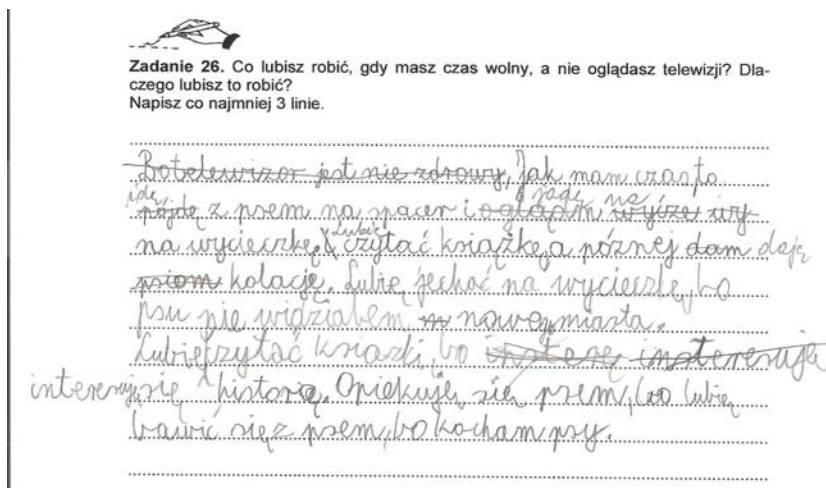 Zadanie 26. Co lubisz robić, gdy masz czas wolny, a nie oglądasz telewizji? Dla-
czego lubisz to robić?
Napisz co najmniej 3 linie.
Bo telewizor jest nie zdrowy, Jak mam czas to
idę
pójdę z psem na spacer i oglądam jadę na
na wycieczkę. Lubię czytać książkę, a póznej dam daję
psiom kolację. Lubię jechać na wycieczkę, bo
psu nie widziałem nowego miasta.
Lubię czytać książki, bo interesuję
interesuję się historią. Opiekuję się psem, bo lubię
bawić się z psem, bo kocham psy.